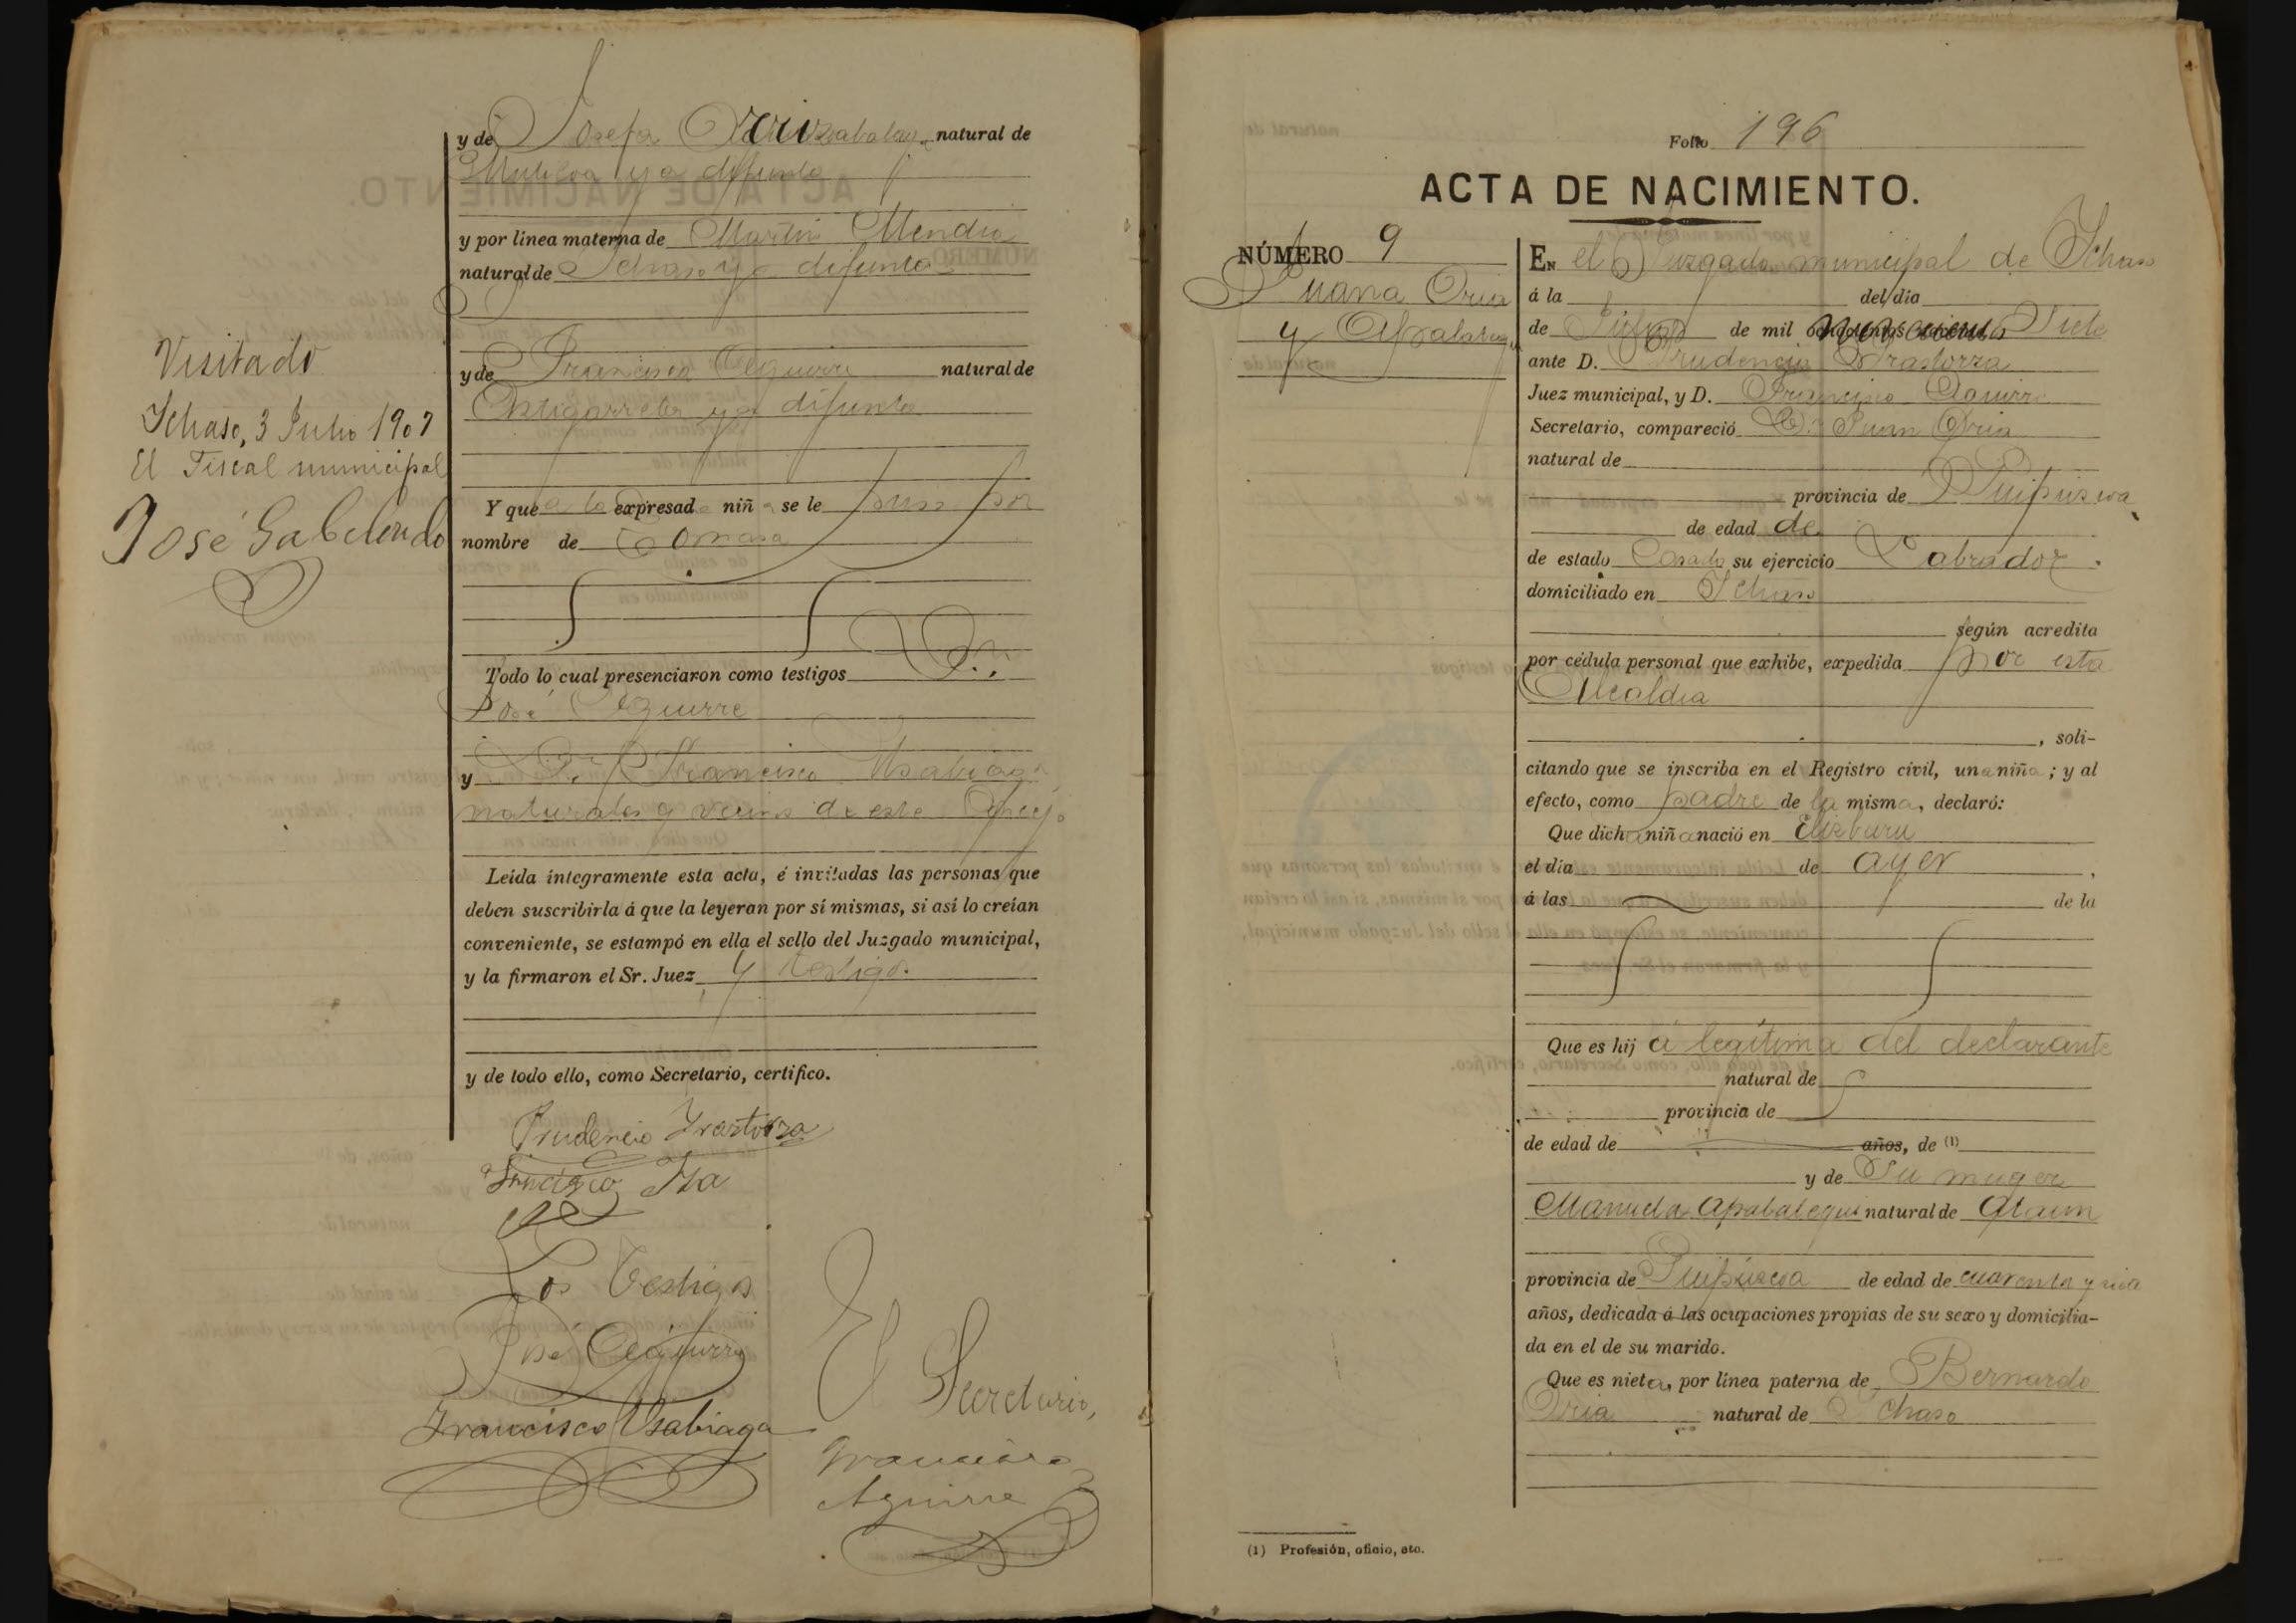 y de Josefa natural de
Mutiloa ya difunta
y por línea materna de Martin Mendia
natural de Ichaso ya difunto
y de Francisca Aguirre natural de
Astigarreta ya difunta
Y que a la expresad niña se le puso por
nombre de Tomasa
Todo lo cual presenciaron como testigos D.
José Aguirre
y D. Francisco Usabiaga
naturales y vecinos de este Concejo
Leída íntegramente esta acta, é invitadas las personas que
deben suscribirla á que la leyeran por sí mismas, si así lo creían
conveniente, se estampó en ella el sello del Juzgado municipal,
y la firmaron el Sr. Juez y testigos.
y de todo ello, como Secretario, certifico.
Prudencio Irastorza
Francisco
Los Testigos
José Aguirre
Francisco Usabiaga
El Secretario,
Francisco
Aguirre
Visitado
Ichaso, 3 Julio 1907
El Fiscal municipal
José Gabilondo
Folio 196
ACTA DE NACIMIENTO.
NÚMERO 9
Juana Oria
y Apalategui
EN el Juzgado municipal de Ichaso
á la del día
de de mil novecientos Siete
ante D. Prudencio Irastorza
Juez municipal, y D. Francisco Aguirre
Secretario, compareció D. Juan Oria
natural de
provincia de Guipúscoa
de edad de
de estado Casado su ejercicio Labrador.
domiciliado en Ichaso
según acredita
por cédula personal que exhibe, expedida por esta
Alcaldia
, soli-
citando que se inscriba en el Registro civil, una niña; y al
efecto, como padre de la misma, declaró:
Que dicha niña nació en Elizburu
el día de ayer,
á las de la
Que es hija legítima del declarante
natural de
provincia de
de edad de años, de (1)
y de Su muger
Manuela Apalategui natural de Ataun
provincia de Guipúscoa de edad de cuarenta y
años, dedicada á las ocupaciones propias de su sexo y domicilia-
da en el de su marido.
Que es nieta, por línea paterna de Bernardo
Oria natural de Ichaso
(1) Profesión, oficio, etc.